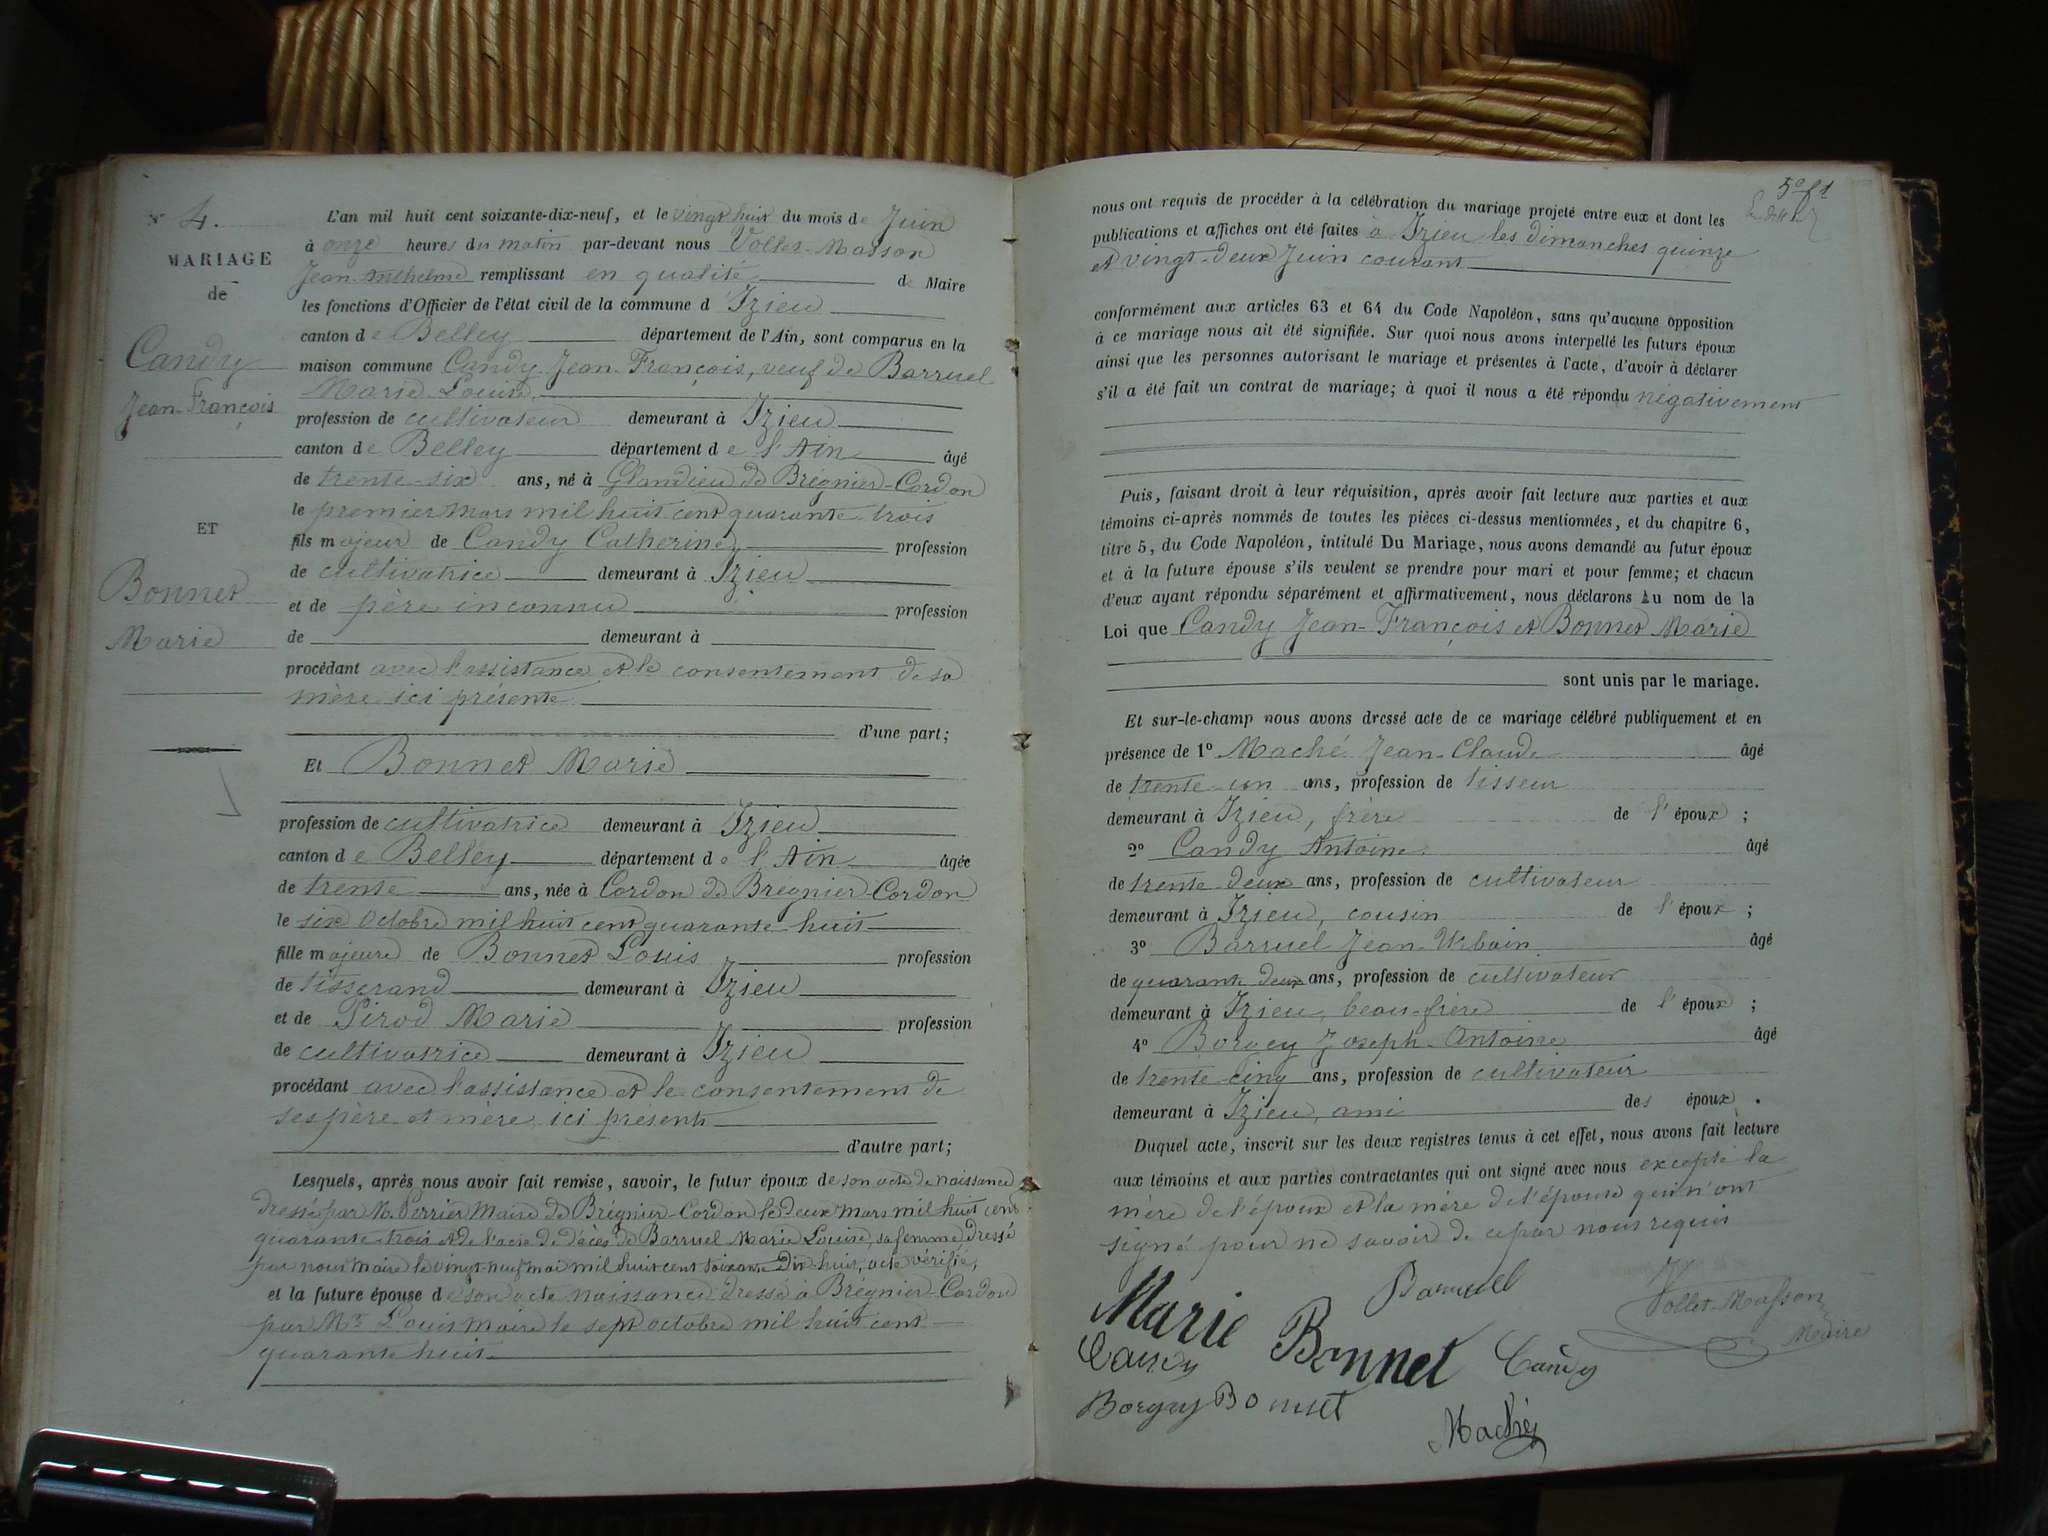 N° 4.
MARIAGE
de
Candy
Jean-François
ET
Bonnet
Marie
L'an mil huit cent soixante-dix-neuf, et le vingt huit du mois de Juin
à onze heures du matin par-devant nous Vollet-Masson
Jean Anthelme remplissant en qualité de Maire
les fonctions d'Officier de l'état civil de la commune d'Izieu
canton de Belley département de l'Ain, sont comparus en la
maison commune Candy Jean-François, veuf de Barruel
Marie Louise
profession de cultivateur demeurant à Izieu
canton de Belley département de l'Ain âgé
de trente-six ans, né à Glandieu de Brégnier-Cordon
le premier mars mil huit cent quarante trois
fils majeur de Candy Catherine profession
de cultivatrice demeurant à Izieu
et de père inconnu profession
de demeurant à
procédant avec l'assistance et le consentement de sa
mère ici présente
d'une part;
Et Bonnet Marie
profession de cultivatrice demeurant à Izieu
canton de Belley département de l'Ain âgée
de trente ans, née à Cordon de Brégnier-Cordon
le six octobre mil huit cent quarante huit
fille majeure de Bonnet Louis profession
de tisserand demeurant à Izieu
et de Pirod Marie profession
de cultivatrice demeurant à Izieu
procédant avec l'assistance et le consentement de
ses père et mère ici présents
d'autre part;
Lesquels, après nous avoir fait remise, savoir, le futur époux de son acte de naissance
dressé par M. Perrier Maire de Brégnier-Cordon le deux mars mil huit cent
quarante trois et de l'acte de décès de Barruel Marie Louise, sa femme, dressé
par nous maire le vingt-neuf mai mil huit cent soixante dix-huit, acte vérifié,
et la future épouse de son acte naissance dressé à Brégnier-Cordon
par Mr Louis maire le sept octobre mil huit cent
quarante huit
nous ont requis de procéder à la célébration du mariage projeté entre eux et dont les
publications et affiches ont été faites à Izieu les dimanches quinze
et vingt-deux Juin courant
conformément aux articles 63 et 64 du Code Napoléon, sans qu'aucune opposition
à ce mariage nous ait été signifiée. Sur quoi nous avons interpellé les futurs époux
ainsi que les personnes autorisant le mariage et présentes à l'acte, d'avoir à déclarer
s'il a été fait un contrat de mariage; à quoi il nous a été répondu négativement
Puis, faisant droit à leur réquisition, après avoir fait lecture aux parties et aux
témoins ci-après nommés de toutes les pièces ci-dessus mentionnées, et du chapitre 6,
titre 5, du Code Napoléon, intitulé Du Mariage, nous avons demandé au futur époux
et à la future épouse s'ils veulent se prendre pour mari et pour femme; et chacun
d'eux ayant répondu séparément et affirmativement, nous déclarons Au nom de la
Loi que Candy Jean-François et Bonnet Marie
sont unis par le mariage.
Et sur-le-champ nous avons dressé acte de ce mariage célébré publiquement et en
présence de 1° Maché Jean-Claude âgé
de trente-un ans, profession de tisseur
demeurant à Izieu, frère de l'époux ;
2° Candy Antoine âgé
de trente deux ans, profession de cultivateur
demeurant à Izieu, cousin de l'époux ;
3° Barruel Jean-Urbain âgé
de quarante deux ans, profession de cultivateur
demeurant à Izieu, beau-frère de l'époux ;
4° Borgey Joseph-Antoine âgé
de trente-cinq ans, profession de cultivateur
demeurant à Izieu, ami des époux.
Duquel acte, inscrit sur les deux registres tenus à cet effet, nous avons fait lecture
aux témoins et aux parties contractantes qui ont signé avec nous excepté la
mère de l'époux et la mère de l'épouse qui n'ont
signé pour ne savoir de ce par nous requis
Barruel
Marie Bonnet
Vollet-Masson
Maire
Candy
Candy
Borgey Bonnet
Maché